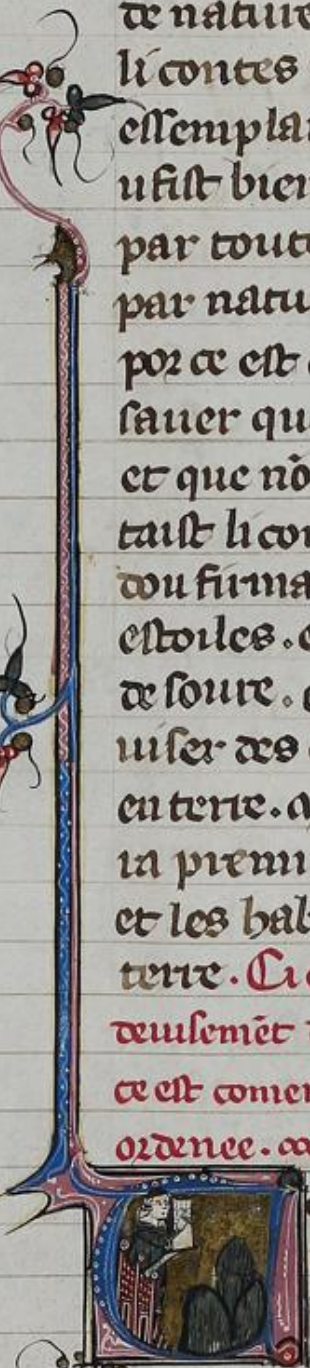 de nature
li contes
essemplai
u fist bien
par toute
par natu
por ce est
sauer qu
et que nō
taist li con
dou firma
estoiles . e
de soure .
uiser des
en terre . a
ra premi
et les hab
terre . Ci
deuisemēt
ce est comen
ordenee .